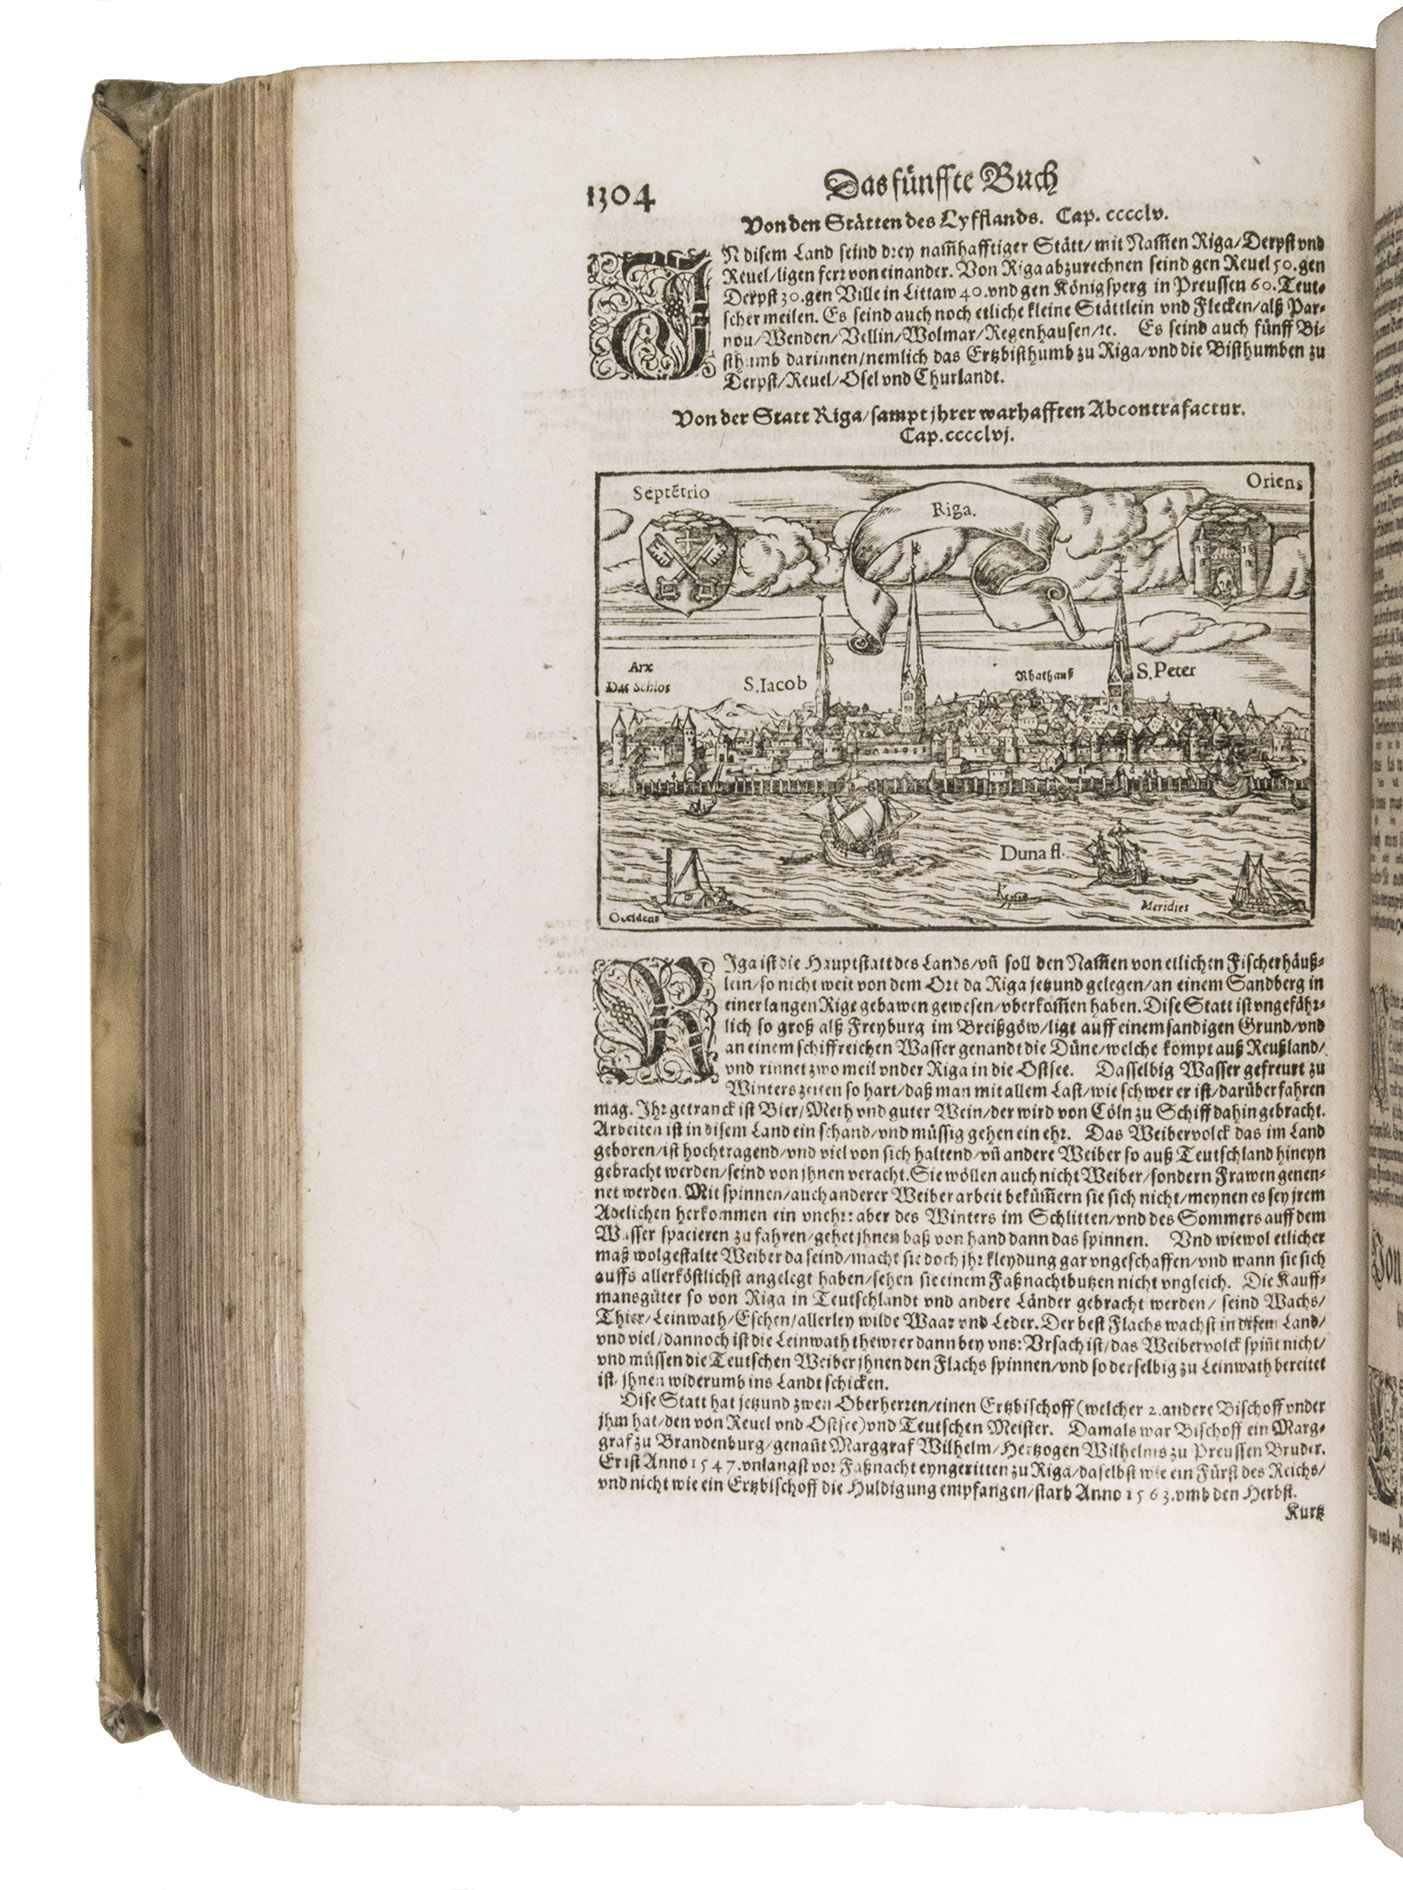 1304
Das fünffte Buch
Von den Stätten des Lyfflands. Cap. cccclv.
IN disem Land seind drey nam̃hafftiger Stätt/ mit Nam̃en Riga/ Derpst vnd
Reuel/ ligen ferr von einander. Von Riga abzurechnen seind gen Reuel 50. gen
Derpst 30. gen Ville in Littaw 40. vnd gen Königsperg in Preussen 60. Teut-
scher meilen. Es seind auch noch etliche kleine Stättlein vnd Flecken/ alß Par-
nou/ Wenden/ Vellin/ Wolmar/ Regenhausen/ ꝛc. Es seind auch fünff Bi-
sthumb darinnen/ nemlich das Ertzbisthumb zu Riga/ vnd die Bisthumben zu
Derpst/ Reuel/ Osel vnd Churlandt.
Von der Statt Riga/ sampt jhrer warhafften Abcontrafactur.
Cap. cccclvj.
Septẽtrio
Oriens
Riga.
Arx
Das Schlos
S. Iacob
Rhathauß
S. Peter
Duna fl.
Occidens
Meridies
RIga ist die Hauptstatt des Lands/ vñ soll den Nam̃en von etlichen Fischerhäuß-
lein/ so nicht weit von dem Ort da Riga jetzund gelegen/ an einem Sandberg in
einer langen Rige gebawen gewesen/ vberkom̃en haben. Dise Statt ist vngefähr-
lich so groß alß Freyburg im Breißgöw/ ligt auff einem sandigen Grund/ vnd
an einem schiffreichen Wasser genandt die Düne/ welche kompt auß Reußland/
vnd rinnet zwo meil vnder Riga in die Ostsee. Dasselbig Wasser gefreurt zu
Winterszeiten so hart/ daß man mit allem Last/ wie schwer er ist/ darüber fahren
mag. Ihr getranck ist Bier/ Meth vnd guter Wein/ der wird von Cöln zu Schiff dahin gebracht.
Arbeiten ist in disem Land ein schand/ vnd müssig gehen ein ehr. Das Weibervolck das im Land
geboren/ ist hochtragend/ vnd viel von sich haltend/ vñ andere Weiber so auß Teutschland hineyn
gebracht werden/ seind von jhnen veracht. Sie wöllen auch nicht Weiber/ sondern Frawen genen-
net werden. Mit spinnen/ auch anderer Weiber arbeit beküm̃ern sie sich nicht/ meynen es sey jrem
Adelichen herkommen ein vnehr: aber des Winters im Schlitten/ vnd des Sommers auff dem
Wasser spacieren zu fahren/ gehet jhnen baß von hand dann das spinnen. Vnd wiewol etlicher
maß wolgestalte Weiber da seind/ macht sie doch jhr kleydung gar vngeschaffen/ vnd wann sie sich
auffs allerköstlichst angelegt haben/ sehen sie einem Faßnachtbutzen nicht vngleich. Die Kauff-
mansgüter so von Riga in Teutschlandt vnd andere Länder gebracht werden/ seind Wachs/
Thier/ Leinwath/ Eschen/ allerley wilde Waar vnd Leder. Der best Flachs wachst in disem Land/
vnd viel/ dannoch ist die Leinwath thewrer dann bey vns: Vrsach ist/ das Weibervolck spiñt nicht/
vnd müssen die Teutschen Weiber jhnen den Flachs spinnen/ vnd so derselbig zu Leinwath bereitet
ist/ jhnen widerumb ins Landt schicken.
Dise Statt hat jetzund zwen Oberherren/ einen Ertzbischoff (welcher 2. andere Bischoff vnder
jhm hat/ den von Reuel vnd Ostsee) vnd Teutschen Meister. Damals war Bischoff ein Marg-
graf zu Brandenburg/ genañt Marggraf Wilhelm/ Hertzogen Wilhelms zu Preussen Bruder.
Er ist Anno 1547. vnlangst vor Faßnacht eyngeritten zu Riga/ daselbst wie ein Fürst des Reichs/
vnd nicht wie ein Ertzbischoff die Huldigung empfangen/ starb Anno 1563. vmb den Herbst.
Kurtz
Von